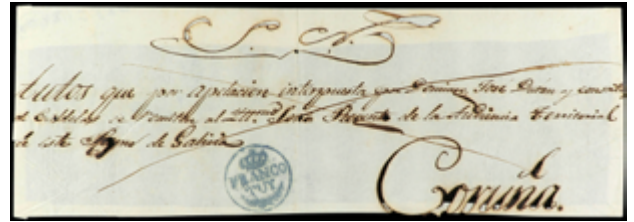 S. N.
Autos que por apelacion interpuesta por Domingo José Durán y consorte
se remiten al Señor Regente de la Audiencia Territorial
de este Reyno de Galicia
FRANCO
TUY
Coruña.